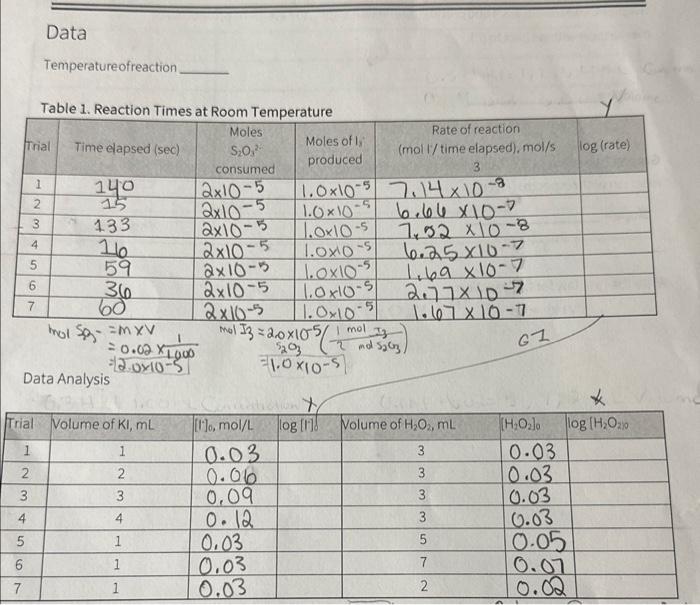 Data
Temperatureofreaction
Table 1. Reaction Times at Room Temperature
Y
Trial | Time elapsed (sec) | Moles S₂O₃²⁻ consumed | Moles of I₃⁻ produced | Rate of reaction (mol I⁻/ time elapsed), mol/s 3 | log (rate)
1 | 140 | 2x10-5 | 1.0x10-5 | 7.14x10-8
2 | 15 | 2x10-5 | 1.0x10-5 | 6.66x10-7
3 | 133 | 2x10-5 | 1.0x10-5 | 7.52x10-8
4 | 16 | 2x10-5 | 1.0x10-5 | 6.25x10-7
5 | 59 | 2x10-5 | 1.0x10-5 | 1.69x10-7
6 | 36 | 2x10-5 | 1.0x10-5 | 2.77x10-7
7 | 60 | 2x10-5 | 1.0x10-5 | 1.67x10-7
= m x V
= 0.02 x 1/1000
= 2.0x10-5
mol I3 = 2.0x10-5 S2O3 (1 mol I3 / 2 mol S2O3)
= 1.0x10-5
Data Analysis
X
X
Trial | Volume of KI, mL | [I⁻]₀, mol/L | log [I⁻]₀ | Volume of H₂O₂, mL | [H₂O₂]₀ | log [H₂O₂]₀
1 | 1 | 0.03 | 3 | 0.03
2 | 2 | 0.06 | 3 | 0.03
3 | 3 | 0.09 | 3 | 0.03
4 | 4 | 0.12 | 3 | 0.03
5 | 1 | 0.03 | 5 | 0.05
6 | 1 | 0.03 | 7 | 0.07
7 | 1 | 0.03 | 2 | 0.02